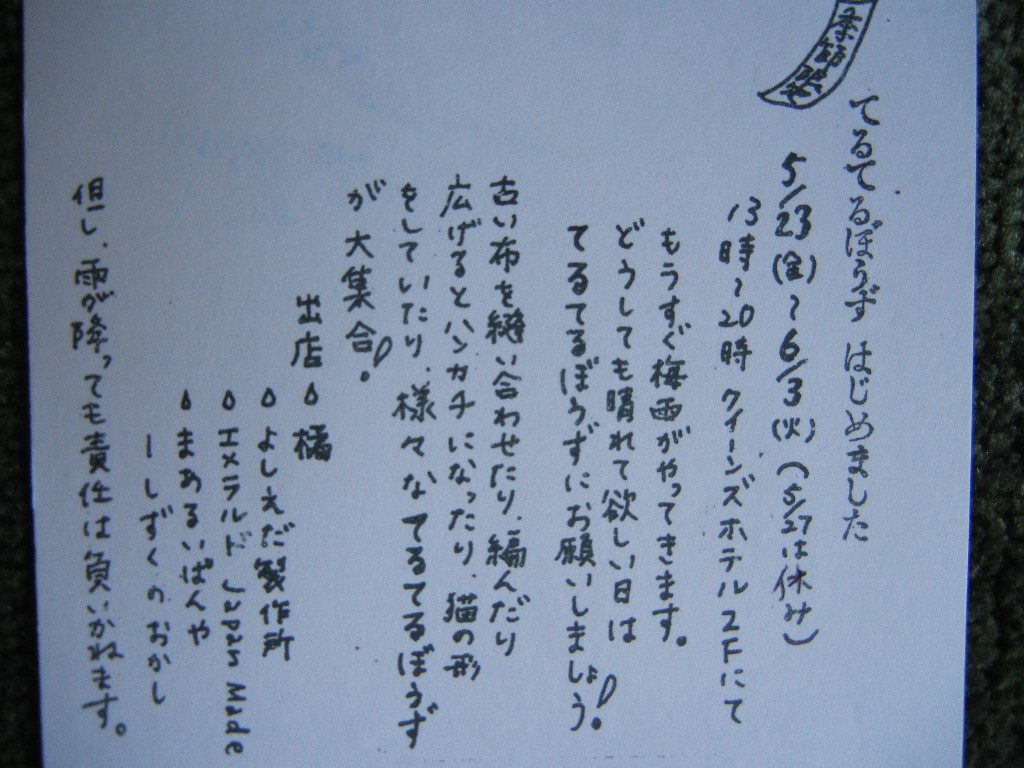 季節限定
てるてるぼうず はじめました
5/23(金)~6/3(火)(5/27は休み)
13時~20時 クイーンズホテル2Fにて
もうすぐ梅雨がやってきます。
どうしても晴れて欲しい日は
てるてるぼうずにお願いしましょう!。
古い布を縫い合わせたり、編んだり
広げるとハンカチになったり、猫の形
をしていたり、様々なてるてるぼうず
が大集合!。
出店 橘
よしえだ製作所
エメラルド Made
まあるいぱんや
ーしずくのおかし
但し、雨が降っても責任は負いかねます。